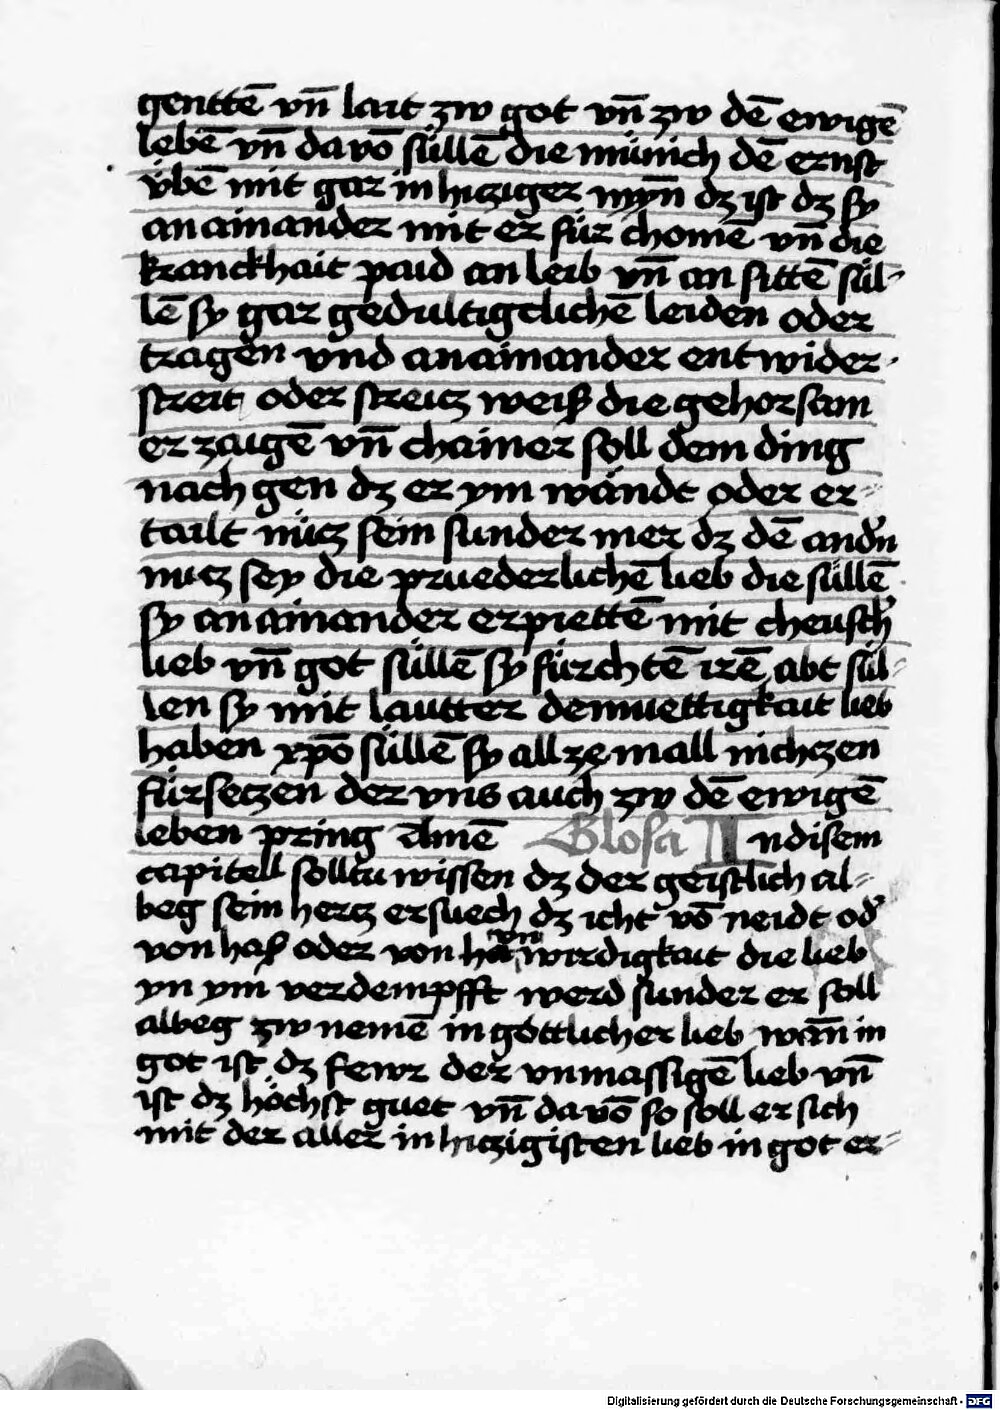 genttē vn̄ lait zw got vn̄ zw dē ewigē
lebē vn̄ da võ süllē die münich dē ernst
übē mit gar in hicziger myn̄ dz ist dz sy
an ainander mit er für chomē vn̄ die
kranckhait paid an leib vn̄ an sittē sül-
lē sy gar gedultigclichē leiden oder
tragen vnd an ainander ent wider
streit oder streicz weiß die gehorsam
er zaigē vn̄ chainer soll dem ding
nach gen dz er ym wändt oder er=
tailt nücz sein sunder mer dz dē andn̄
nucz sey die pruederlichē lieb die süllē
sy an ainander erpiettē mit cheusch̄
lieb vn̄ got süllē sy fürchtē irē abt sül=
len sy mit lautter demuettigkait lieb
haben xp̄o süllē sy all ze mall nichczen
fürseczen der vns auch zw dē ewigē
leben pring Amē Glosa In disem
capitell solltu wissen dz der geistlich al=
beg sein hercz ersuech dz icht võ neidt od̄
von haß oder von vn wirdigkait die lieb
yn ym verdempfft werd sunder er soll
albeg zw nemē in göttlicher lieb wan̄ in
got ist dz fewr der vnmassigē lieb vn̄
ist dz höchst guet vn̄ da võ so soll er sich
mit der aller in hiczigisten lieb in got er=
Digitalisierung gefördert durch die Deutsche Forschungsgemeinschaft - DFG